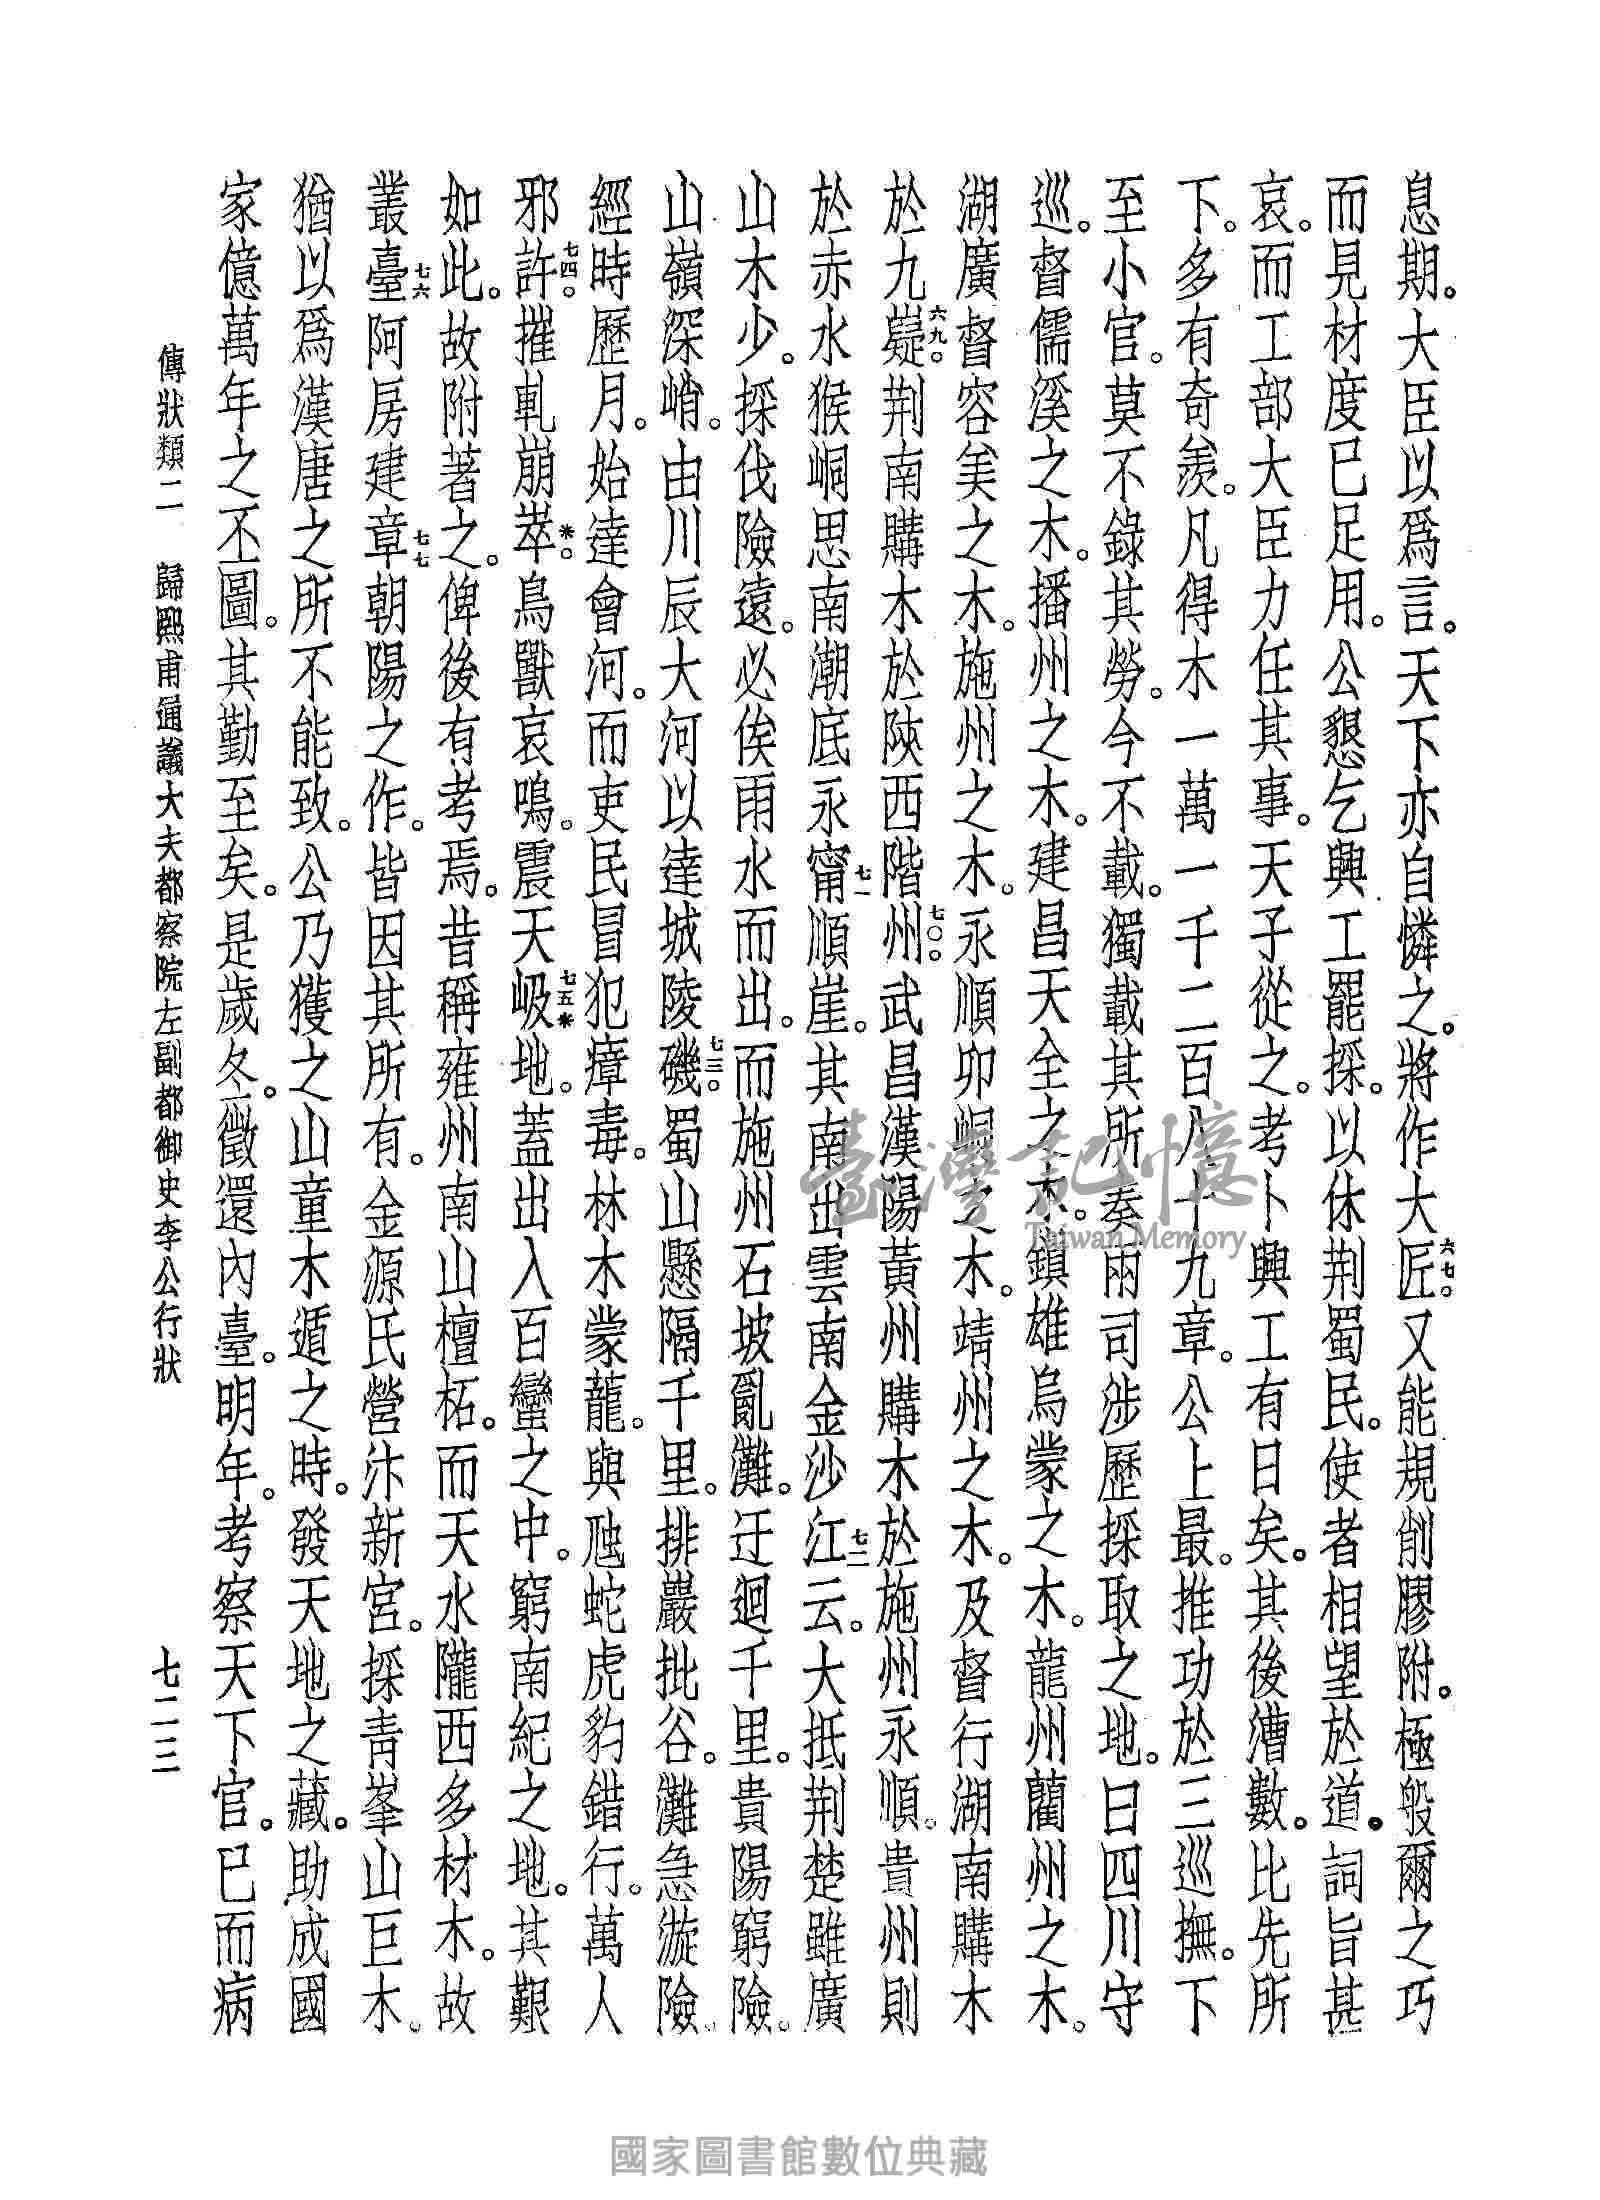 息期。大臣以爲言。天下亦自憐之。將作大匠六七。又能規削膠附。極般爾之巧
而見材度已足用。公懇乞興工罷採。以休荆蜀民。使者相望於道。詞旨甚
哀。而工部大臣力任其事。天子從之。考卜興工有日矣。其後漕數。比先所
下。多有奇羨。凡得木一萬一千二百八十九章。公上最。推功於三巡撫。下
至小官。莫不錄其勞。今不載。獨載其所奏兩司涉歷採取之地。曰四川守
巡。督儒溪之木。播州之木。建昌天全之木。鎮雄烏蒙之木。龍州藺州之木。
湖廣督容美之木。施州之木。永順卯峒之木。靖州之木。及督行湖南購木
於九嶷六九。荆南購木於陝西階州七〇。武昌漢陽黃州購木於施州永順。貴州則
於赤水猴峒思南潮底永甯七一順崖。其南出雲南金沙江七二云。大抵荆楚雖廣
山木少。採伐險遠。必俟雨水而出。而施州石坡亂灘。迂迴千里。貴陽窮險。
山嶺深峭。由川辰大河以達城陵磯七三。蜀山懸隔千里。排巖批谷。灘急漩險。
經時歷月。始達會河。而吏民冒犯瘴毒。林木蒙蘢。與虺蛇虎豹錯行。萬人
邪許七四。摧軋崩萃※。鳥獸哀鳴。震天岋七五※地。蓋出入百蠻之中。窮南紀之地。其艱
如此。故附著之。俾後有考焉。昔稱雍州南山檀柘。而天水隴西多材木。故
叢臺七六阿房建章七七朝陽之作。皆因其所有。金源氏營汴新宮。採青峯山巨木。
猶以爲漢唐之所不能致。公乃獲之山童木遁之時。發天地之藏。助成國
家億萬年之丕圖。其勤至矣。是歲冬。徵還內臺。明年。考察天下官。已而病
傳狀類二 歸熙甫通議大夫都察院左副都御史李公行狀 七二三
臺灣記憶
Taiwan Memory
國家圖書館數位典藏